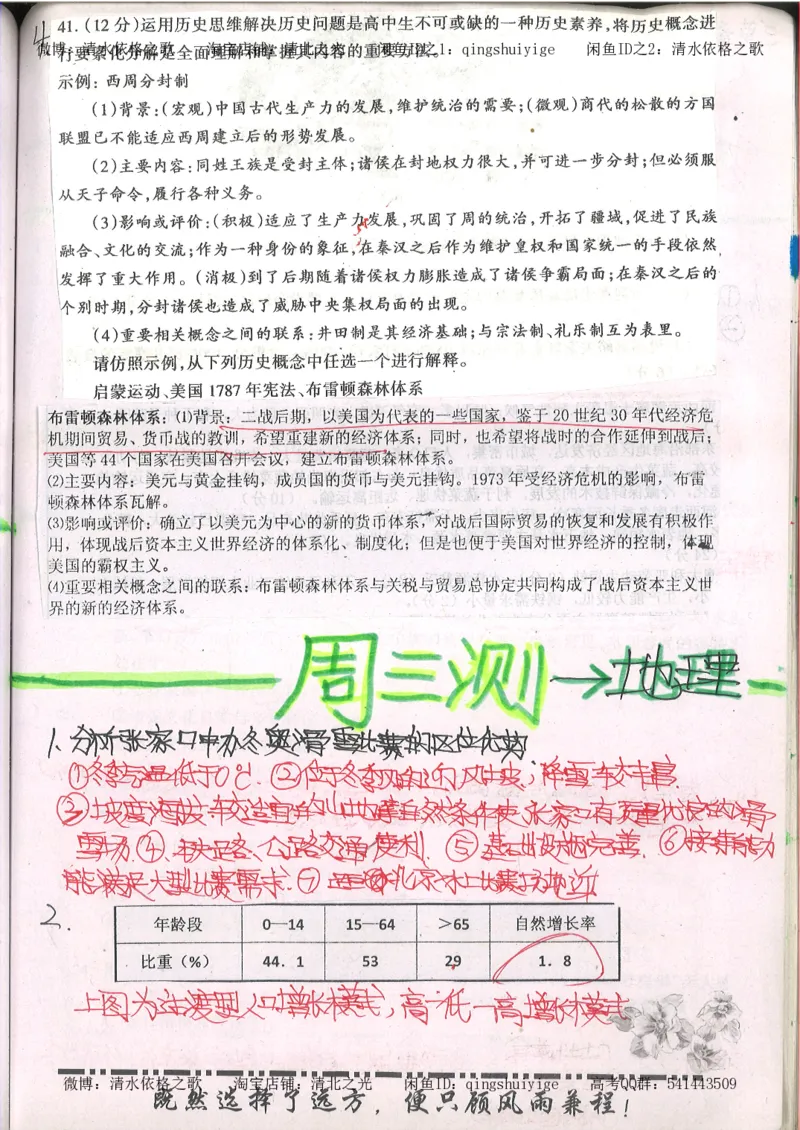 4
41.(12分)运用历史思维解决历史问题是高中生不可或缺的一种历史素养,将历史概念进
行要素化分解是全面理解和掌握其内容的重要方法。
微博：清水依格之歌 淘宝店铺：清北之光 闲鱼ID之1：qingshuiyige 闲鱼ID之2：清水依格之歌
示例：西周分封制
(1)背景:(宏观)中国古代生产力的发展,维护统治的需要;(微观)商代的松散的方国
联盟已不能适应西周建立后的形势发展。
(2)主要内容:同姓王族是受封主体;诸侯在封地权力很大,并可进一步分封;但必须服
从天子命令,履行各种义务。
(3)影响或评价:(积极)适应了生产力发展,巩固了周的统治,开拓了疆域,促进了民族
融合、文化的交流;作为一种身份的象征,在秦汉之后作为维护皇权和国家统一的手段依然
发挥了重大作用。(消极)到了后期随着诸侯权力膨胀造成了诸侯争霸局面;在秦汉之后的
个别时期,分封诸侯也造成了威胁中央集权局面的出现。
(4)重要相关概念之间的联系:井田制是其经济基础;与宗法制、礼乐制互为表里。
请仿照示例,从下列历史概念中任选一个进行解释。
启蒙运动、美国1787年宪法、布雷顿森林体系
布雷顿森林体系：⑴背景：二战后期，以美国为代表的一些国家，鉴于20世纪30年代经济危
机期间贸易、货币战的教训，希望重建新的经济体系；同时，也希望将战时的合作延伸到战后；
美国等44个国家在美国召开会议，建立布雷顿森林体系。
⑵主要内容：美元与黄金挂钩，成员国的货币与美元挂钩。1973年受经济危机的影响，布雷
顿森林体系瓦解。
⑶影响或评价：确立了以美元为中心的新的货币体系，对战后国际贸易的恢复和发展有积极作
用，体现战后资本主义世界经济的体系化、制度化；但是也便于美国对世界经济的控制，体现
美国的霸权主义。
⑷重要相关概念之间的联系：布雷顿森林体系与关税与贸易总协定共同构成了战后资本主义世
界的新的经济体系。
周三测→地理
1、分析张家口申办冬奥滑雪比赛的区位优势
①冬季气温低于0℃. ②位于冬季风的迎风坡,降雪较丰富
③坡度适中
雪场. ④、铁路、公路交通便利. ⑤基础设施完善. ⑥接待能力
能满足大型比赛需求. ⑦距离北京冰上比赛场地近
2.
年龄段 0—14 15—64 ＞65 自然增长率
比重（%） 44.1 53 29 1.8
上图为过渡型人口增长模式,高一低一高增长模式
微博：清水依格之歌 淘宝店铺：清北之光 闲鱼ID：qingshuiyige 高考QQ群：541443509
既然选择了远方，便只顾风雨兼程！